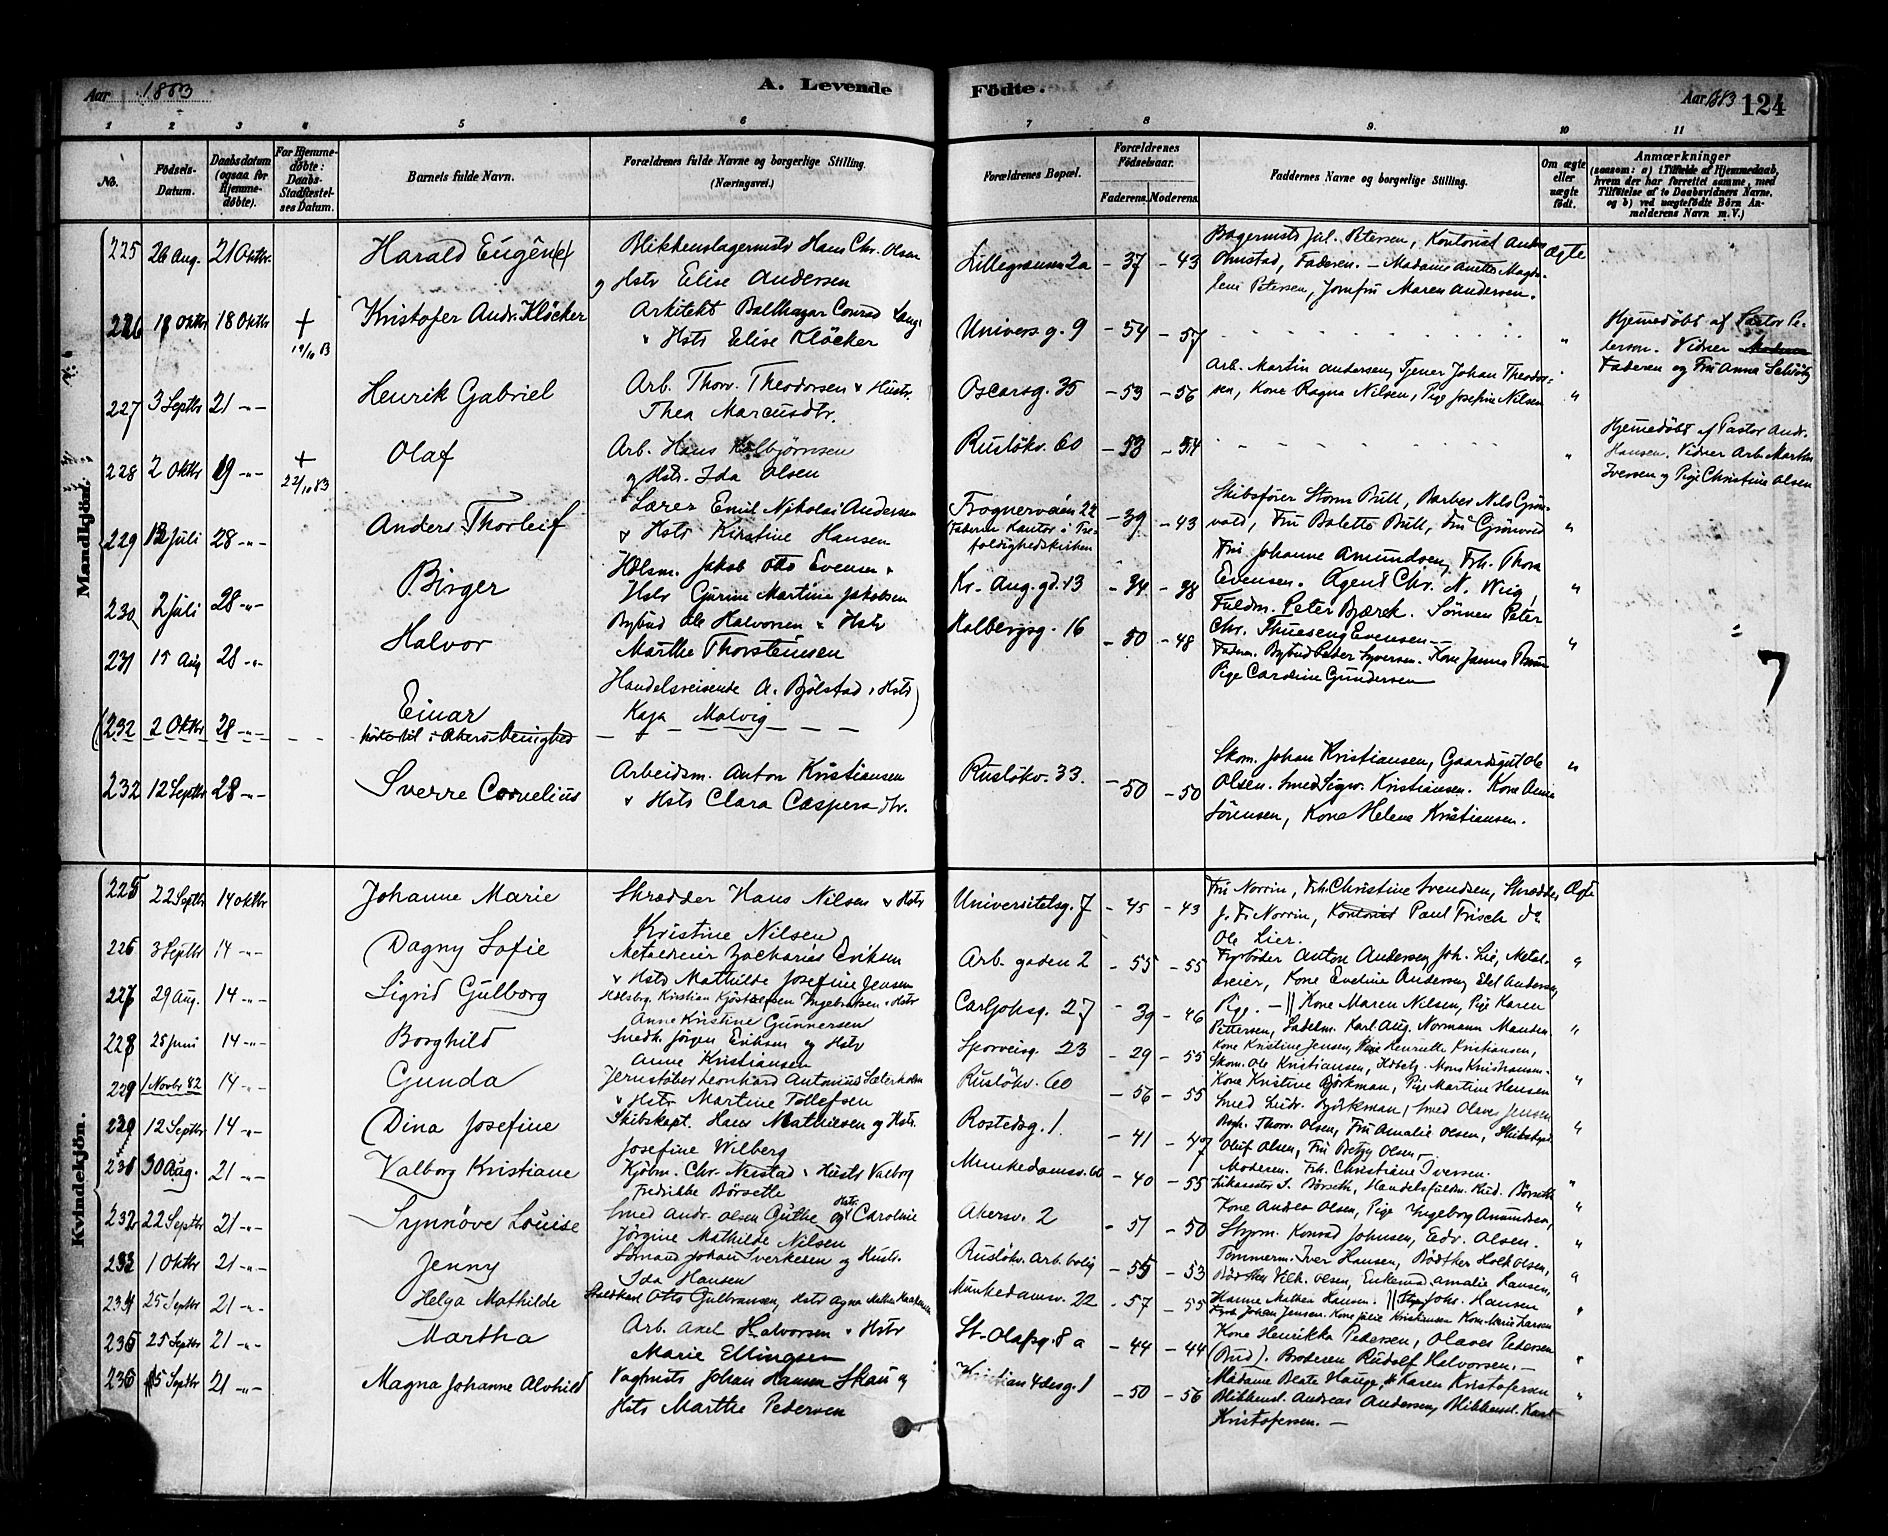 Aar 1883
A. Levende Födte.
Aar 1883 124
1 2 3 4 5 6 7 8 9. 10 11
No.
Födsels-Datum.
Daabsdatum (ogsaa for Hjemmedöbte).
For Hjemmedöbte: Daabs-Stadfæstelses Datum.
Barnets fulde Navn.
Forældrenes fulde Navne og borgerlige Stilling. (Næringsvei.)
Forældrenes Bopæl.
Forældrenes Födselsaar.
Faderens. Moderens.
Faddernes Navne og borgerlige Stilling.
Om ægte eller uægte födt.
Anmærkninger
(saasom: a) i Tilfælde af Hjemmedaab, hvem der har forrettet samme, med Tilföielse af to Daabsvidners Navne, og b) ved uægtefödte Börn Anmelderens Navn m.V.)
Mandkjön.
225 26 Aug. 21 Oktbr. Harald Eugen(e)
Hans Chr. Olsen
og Hstr Elise Andersen
Lillegrændsen 2a - 37 - 43
Petersen, Kontorist
Faderen. - Madame Anette Magda-
lene Petersen, Jomfru Maren Andersen.
Ægte
226 18 Oktbr + 19/10 83 Kristofer Andr. Klöcker
Arkitekt Balthazar Conrad Lange
" Hstr Elise Klöcker
Univers.g. 9 - 54 - 57 "
Hjemmedöbt af Pastor Pe-
terson. Vidner
Faderen og Fru Anna
227 3 Septbr 21 -"- Henrik Gabriel
Arb. Thorv. Theodorsen & Hustr.
Thea Marcusdtr.
Oscarsg. 35 - 53 - 56
Arb. Martin Andersen, Tjener Johan Theodor-
sen, Kone Ragna Nilsen, Pige Josefine Nilsen "
228 2 Oktbr 19 -"- + 22/10 83 Olaf
Arb. Hans Kolbjörnsen
og Hstr. Ida Olsen
Ruslökv. 60 - 53 - 54 "
Hjemmedöbt af Pastor Andr.
Hansen. Vidner Arb. Martin
Iversen og Pige Christine Olsen
229 12 Juli 28 -"- Anders Thorleif
Lærer Emil Nikolai Andersen
& Hstr Kirstine Hansen
Frognerveien 22
Faderen Kantor i Tre-
foldighedskirken
- 39 - 43
Skibsförer Storm Bull, Barber Nils Grön-
vold, Fru Bolette Bull, Fru Grönvold "
230 2 Juli 28 -"- Birger
Jakob Otto Evensen &
Hstr Gurine Martine Jakobsen
Kr. Aug. gd. 13 - 34 - 38
Fru Johanne Amundsen, Frk. Thora
Evensen. Agent Chr. N. Wiig,
Fuldm. Peter Bjerck. Sönnen Peter
Chr. Thuesen Evensen - "
231 15 Aug 28 -"- Halvor
Bybud Ole Halvorsen & Hstr
Marthe Thorsteinsen
Holbergsg. 16 - 50 - 48
Faderen. Bybud Peder Syversen. Kone
Pige Caroline Gundersen "
7
(232 2 Oktbr 28 -"- Einar
hörer til i Akers Menighed
Handelsreisende A. Bjölstad & Hstr
Kaja Malvig )
232 12 Septbr 28 -"- Sverre Cornelius
Arbeidsm. Anton Kristiansen
& Hstr Clara Caspersdtr.
Ruslökv. 33. - 50 - 50
Skom. Johan Kristiansen, Gaardsgut Ole
Olsen. Smed Sigv. Kristiansen. Kone Anne
Sörensen, Kone Helene Kristiansen. "
Kvindekjön.
225 22 Septbr 14 Oktbr Johanne Marie
Skrædder Hans Nilsen & Hstr
Kristine Nilsen
Universitetsg. 7 - 45 - 43
Fru Norrin, Frk. Christine Svendsen, Skrædder
J. Fr. Norrin, Paul Frisch do
Ole Lier.
Ægte
226 3 Septbr 14 -"- Dagny Sofie
Metaldreier Zacharias Eriksen
& Hstr Mathilde Josefine Jensen
Arb. gaden 2 - 55 - 55
Fyrböder Anton Andersen, Joh. Lie, Metal-
dreier, Kone Eveline Andersen, Andersen
Pige. "
227 29 Aug. 14 -"- Sigrid Gulborg
Ingebretsen & Hstr
Anne Kristine Gunnersen
Carljohsg. 27 - 39 - 46
Kone Maren Nilsen, Pige Karen
Pettersen, Sadelm. Karl Aug. Normann "
228 25 Juni 14 -"- Borghild
Smedk. Jörgen Eriksen og Hstr
Anne Kristiansen
Sporveisg. 23 - 29 - 55
Kone Kristine Jensen, Pige Henriette Kristiansen,
Skom. Ole Kristiansen, Mons Kristiansen. "
229 1 Novbr 82 14 -"- Gunda
Jernstöber Leonhard Antonius Sæterholm
& Hstr Martine Tollefsen
Ruslökv. 60 - 56 - 55
Kone Kristine Björkman, Pige Martine Hansen
Smed Ludv. Björkman, Smed Olav Jensen
229 12 Septbr 14 -"- Dina Josefine
Skibskapt. Hans Mathiesen og Hstr.
Josefine Wilberg
Rostedsg. 1. - 41 - 47
Thorv. Olsen, Fru Amalie Olsen, Skibskapt
Oluf Olsen, Fru Betzy Olsen - "
231 30 Aug. 21 -"- Valborg Kristiane
Kjöbm. Chr. Nerstad & Hustr Valborg
Fredrikke Börseth
Munkedamsv. - 40 - 55
Moderen. Frk. Christiane Iversen.
Börseth, Handelsfuldm. Börseth "
232 22 Septbr 21 -"- Synnöve Louise
Smed Andr. Olsen Guthe og Hstr. Caroline
Jörgine Mathilde Nilsen
Akersv. 2 - 51 - 50
Kone Andrea Olsen, Pige Ingeborg Amundsen,
Styrm. Konrad Johnsen, Edv. Olsen. "
233 1 Oktbr 21 -"- Jenny
Sömand Johan Sverkesen og Hustr.
Ida Hansen
Ruslökv. Arb. bolig - 55 - 53
Tömmerm. Iver Hansen, Bödtker Holk Olsen,
Bödtker Vilh. Olsen, Enkemad. Amalie Larsen,
Hanne Mathea Hansen. "
234 25 Septbr 21 -"- Helga Mathilde
Staldkarl Otto Gulbransen, Hstr Agna
Munkedamsv. 22 - 57 - 55
Johs. Hansen
Fyrb. Johan Jensen. Kone Julie Kristiansen Kone Marie Larsen "
235 25 Septbr 21 -"- Martha
Arb. Axel Halvorsen & Hstr
Marie Ellingsen
St. Olafsg. 8a - 44 - 44
Kone Henrikka Pedersen, Olaves Pedersen
(Bud). Broderen Rudolf Halvorsen. - "
236 15 Septbr 21 -"- Magna Johanne Alvhild
Vagtmstr Johan Hansen Skau og
Hstr Marthe Pedersen
Kristian 4des g. 1 - 50 - 56
Madame Beate Hauge, Karen Kristofersen
Blikkensl. Andreas Andersen, Blikkensl. Karl
Kristofersen. - "